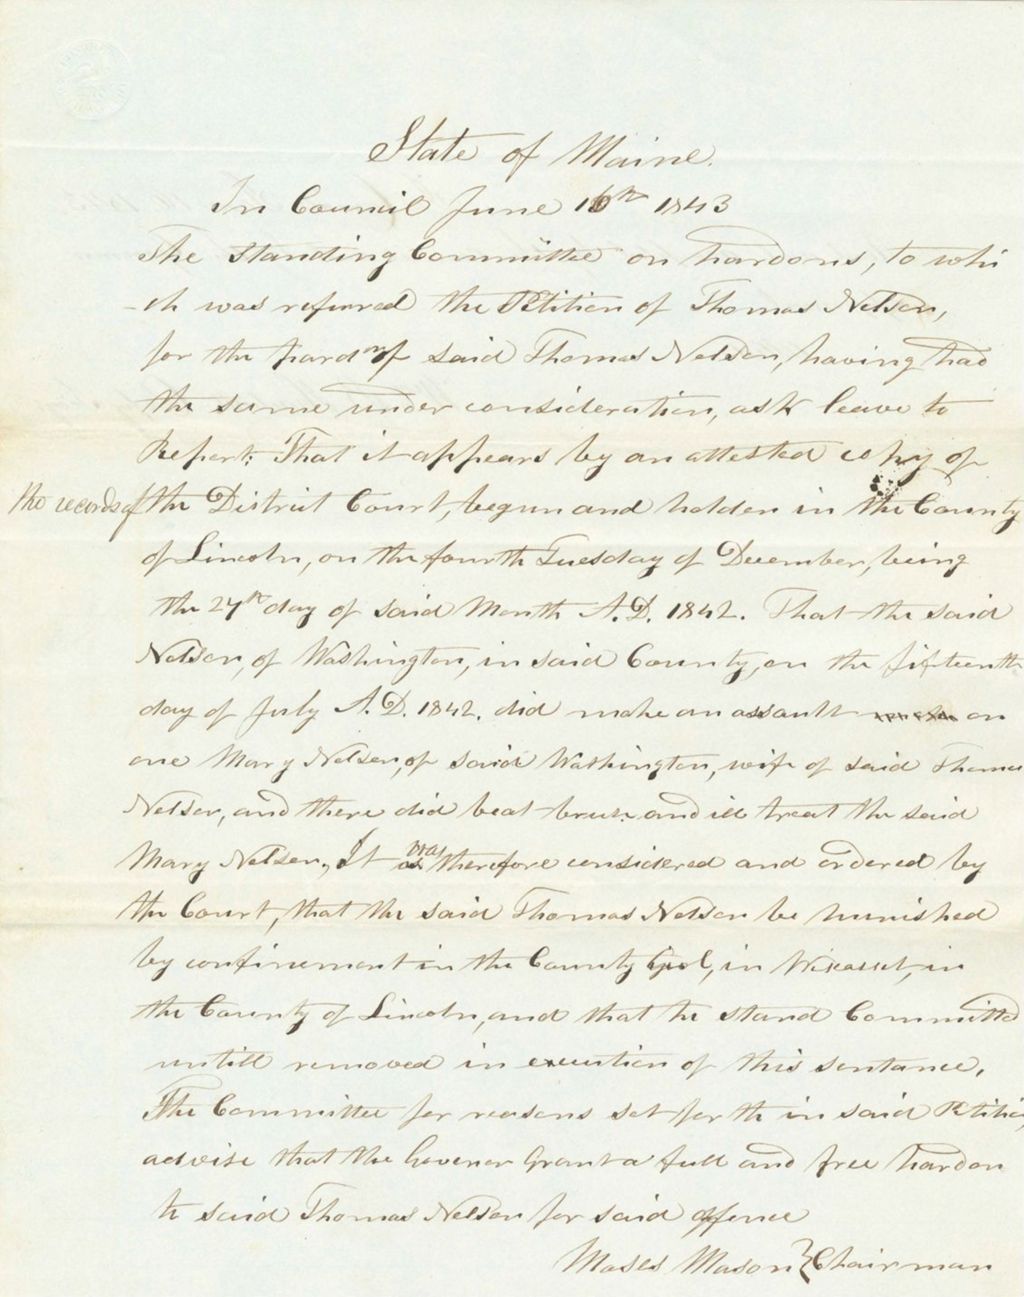 State of Maine.
In Council June 16th 1843
The Standing Committee on Pardons, to whi
-ch was referred the Petition of Thomas Nelson,
for the pardon of said Thomas Nelson, having had
the same under consideration, ask leave to
Report: That it appears by an attested copy of
the records of the District Court, begun and holden in the County
of Lincoln, on the fourth Tuesday of December, being
the 27th day of said Month A.D. 1842. That the said
Nelson, of Washington, in said County, on the fifteenth
day of July A.D. 1842. did make an assault on
one Mary Nelson, of said Washington, wife of said Thomas
Nelson, and there did beat bruise and ill treat the said
Mary Nelson, It was therefore considered and ordered by
the Court, that the said Thomas Nelson be punished
by confinement in the County Gaol, in Wiscasset, in
the County of Lincoln, and that he stand Committed
untill removed in execution of this sentance.
The Committee for reasons set forth in said Petition
advise that the Govenor Grant a full and free pardon
to said Thomas Nelson for said offence
Moses Mason } Chairman